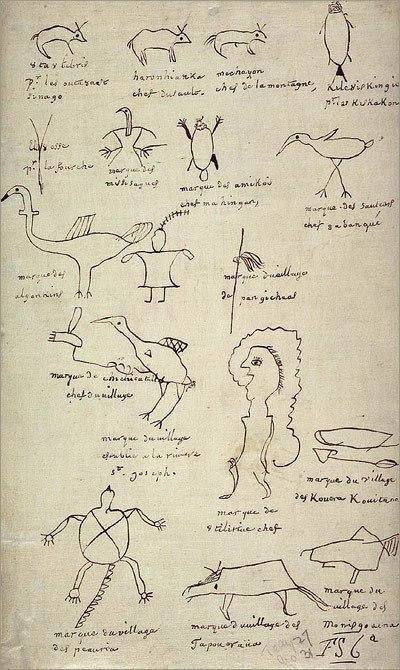 8ta8liβis
pr. les outa8aes
sinago
haronhiatéka
chef du sault.
mechayon
chef de la montagne,
Kileouiskingié
pr. les Kiskakon
elaouesse
pr. la fourche
marque des
mississagues
marque des amikois
chef mahingan,
marque des sauteurs
chef 8abangué
marque des
algonkins
marque du village
de pangicheas
marque de chichicatalo
chef du village
marque du village
establie a la riviere
st. joseph.
marque de
8tilirine chef
marque du village
des Kouera Kouitanon
marque du village
des peauria
marque du village des
Tapouaroua
marque du
village des
Monisgouena
FSC a